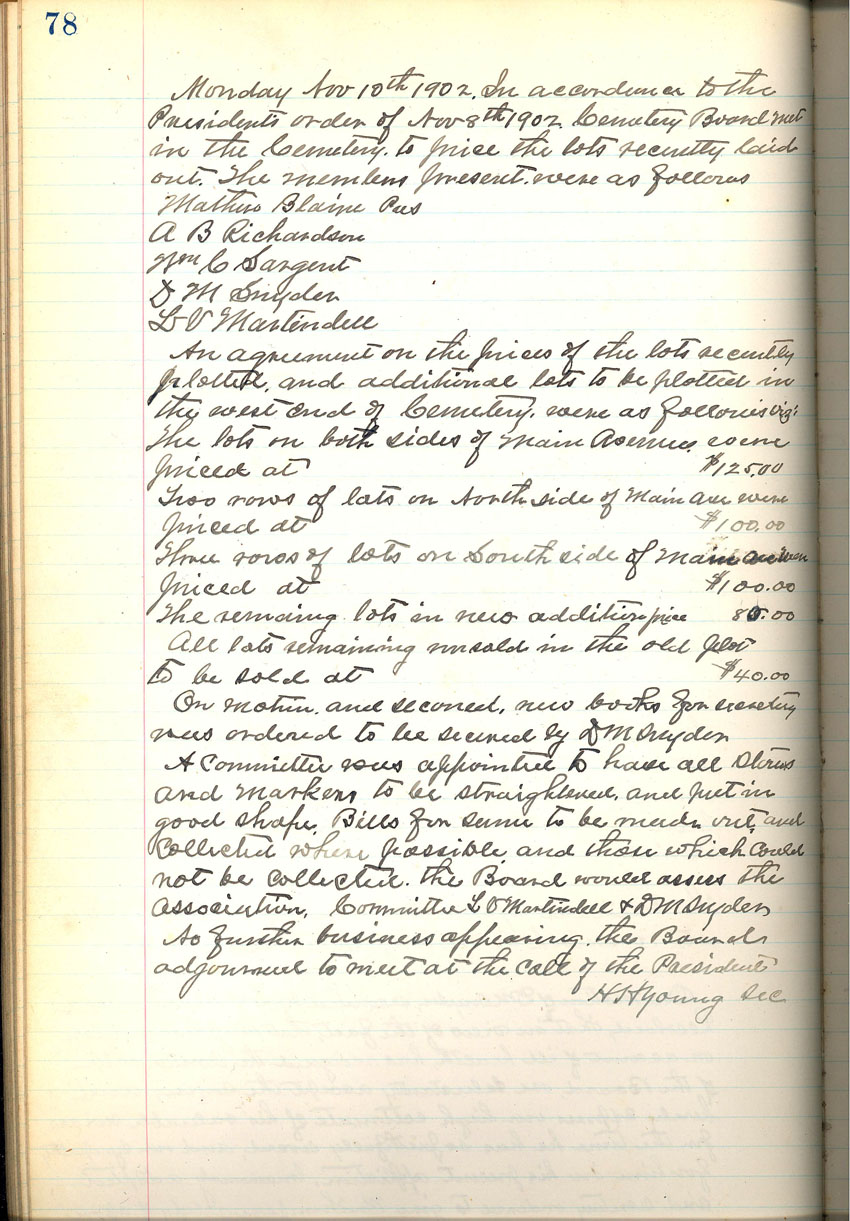 78
Monday Nov 10th 1902. In accordance to the
Presidents order of Nov 8th 1902. Cemetery Board met
in the Cemetery. to price the lots recently laid
out. The members present. were as follows
Mathew Blaine Pres
A B Richardson
Wm C Sargent
D M Snyder
L V Martindell
An agreement on the prices of the lots recently
plotted, and additional lots to be plotted in
the west end of Cemetery. were as follows viz:
The lots on both sides of Main Avenue were
priced at $125.00
Two rows of lots on North side of Main ave were
priced at $100.00
Three rows of lots on South side of Main ave were
priced at $100.00
The remaing lots in new addition price 80.00
All lots remaining unsold in the old plot
to be sold at $40.00
On motion. and seconed, new books for secretary
was ordered to be secured by D M Snyder
A Committee was appointed to have all Stones
and Markers to be straightened. and put in
good shape. Bills for same to be made out. and
Collected where possible and those which Could
not be collected. the Board would assess the
Association, Committee L V Martindell & D M Snyder
No further business appearing. the Board
adjourned to meet at the Call of the President
H H Young Sec